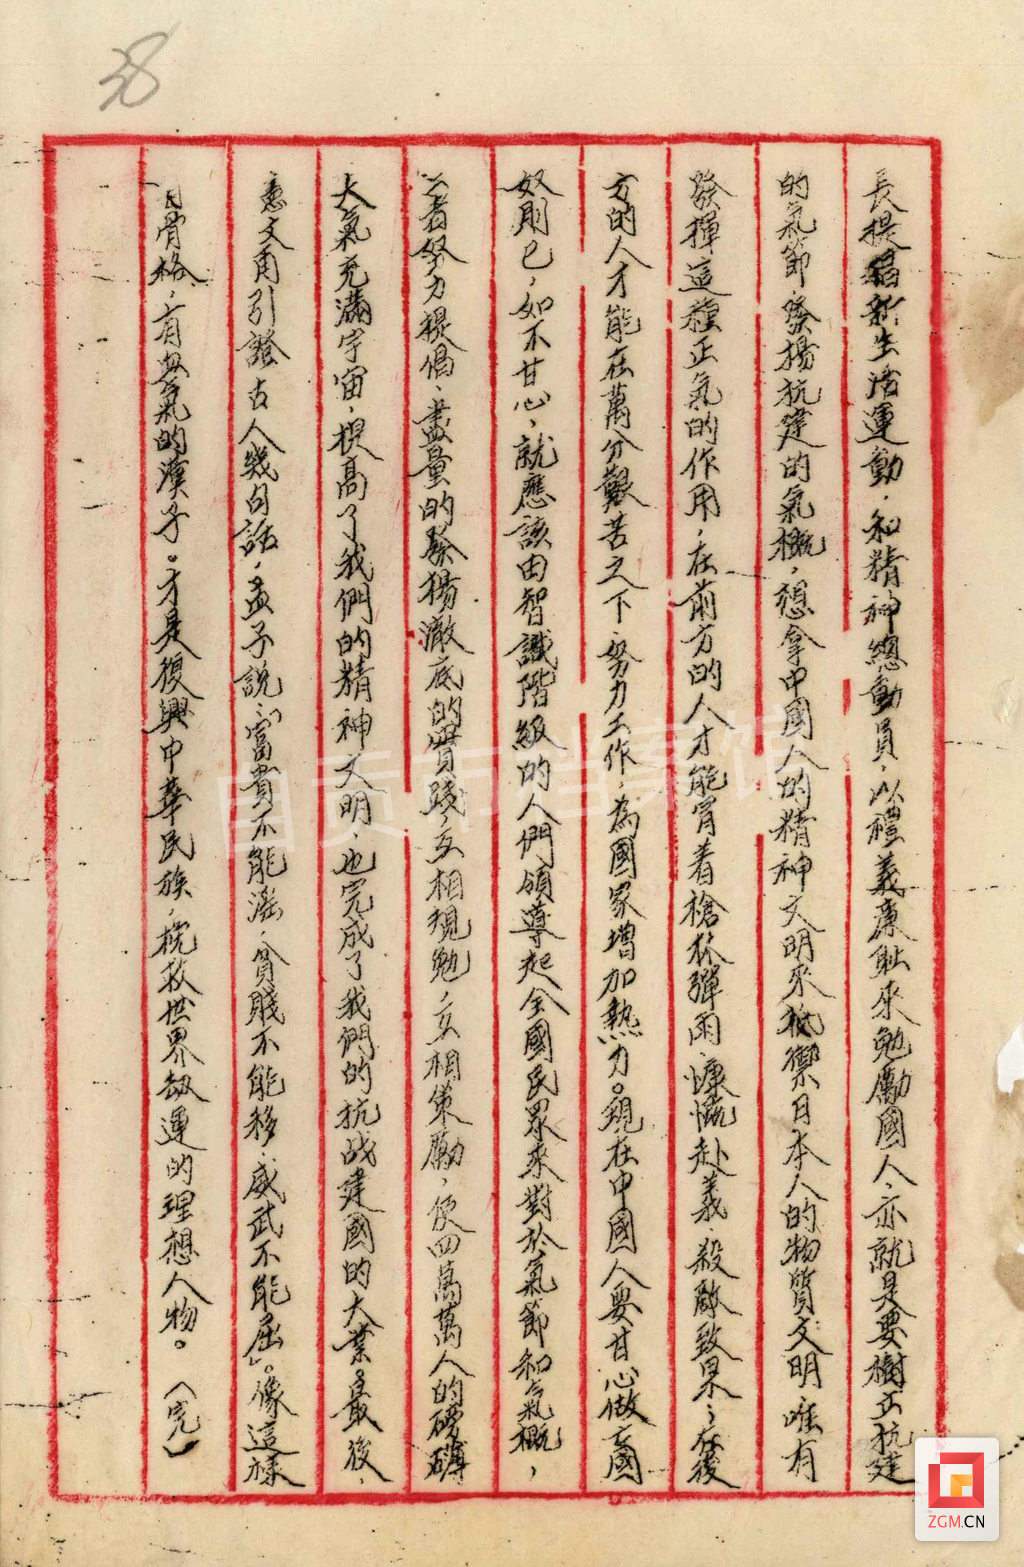 38
長提倡新生活運動，和精神總動員，以禮義廉恥來勉勵國人，亦就是要樹立抗建
的氣節，發揚抗建的氣概，想拿中國人的精神文明來抵禦日本人的物質文明唯有
發揮這種正氣的作用，在前方的人才能冒着槍林彈雨，慷慨赴義，殺敵致果，在後
方的人才能在萬分艱苦之下努力工作，為國家增加熱力。現在中國人要甘心做亡國
奴則已，如不甘心，就應該由智識階級的人們領導起全國民眾來對於氣節和氣概，
着努力提倡，盡量的發揚澈底的實踐，互相規勉，互相策勵，使四萬萬人的磅礡
大氣充滿宇宙，提高了我們的精神文明，也完成了我們的抗战建國的大業。最後，
文甫引證古人幾句話，孟子說：「富貴不能淫，貧賤不能移，威武不能屈」。像這樣
有骨格，有血氣的漢子。才是復興中華民族，挽救世界劫運的理想人物。（完）
自贡市档案馆
ZGM.CN